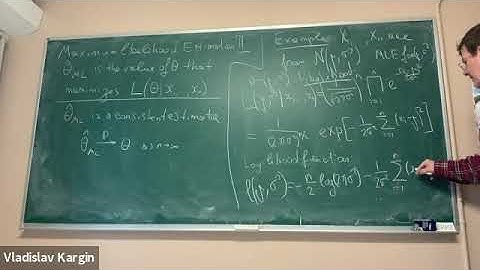 Maximum likelihood Estimation II
θ̂_ML is the value of θ that
maximizes L(θ|x₁ ... xₙ)
θ̂_ML is a consistent estimator
θ̂_ML →ᵖ θ as n→∞
Example: X₁ ... Xₙ are
from N(μ, σ²)
MLE for μ, σ²
L(μ, σ²) = ∏ e
= 1/(2πσ²)^{n/2} exp[-1/2σ² Σ(xᵢ-μ)²]
Log-likelihood function:
ℓ(μ, σ²) = -n/2 log(2πσ²) - 1/2σ² Σ_{i=1}^{n} (x
Vladislav Kargin